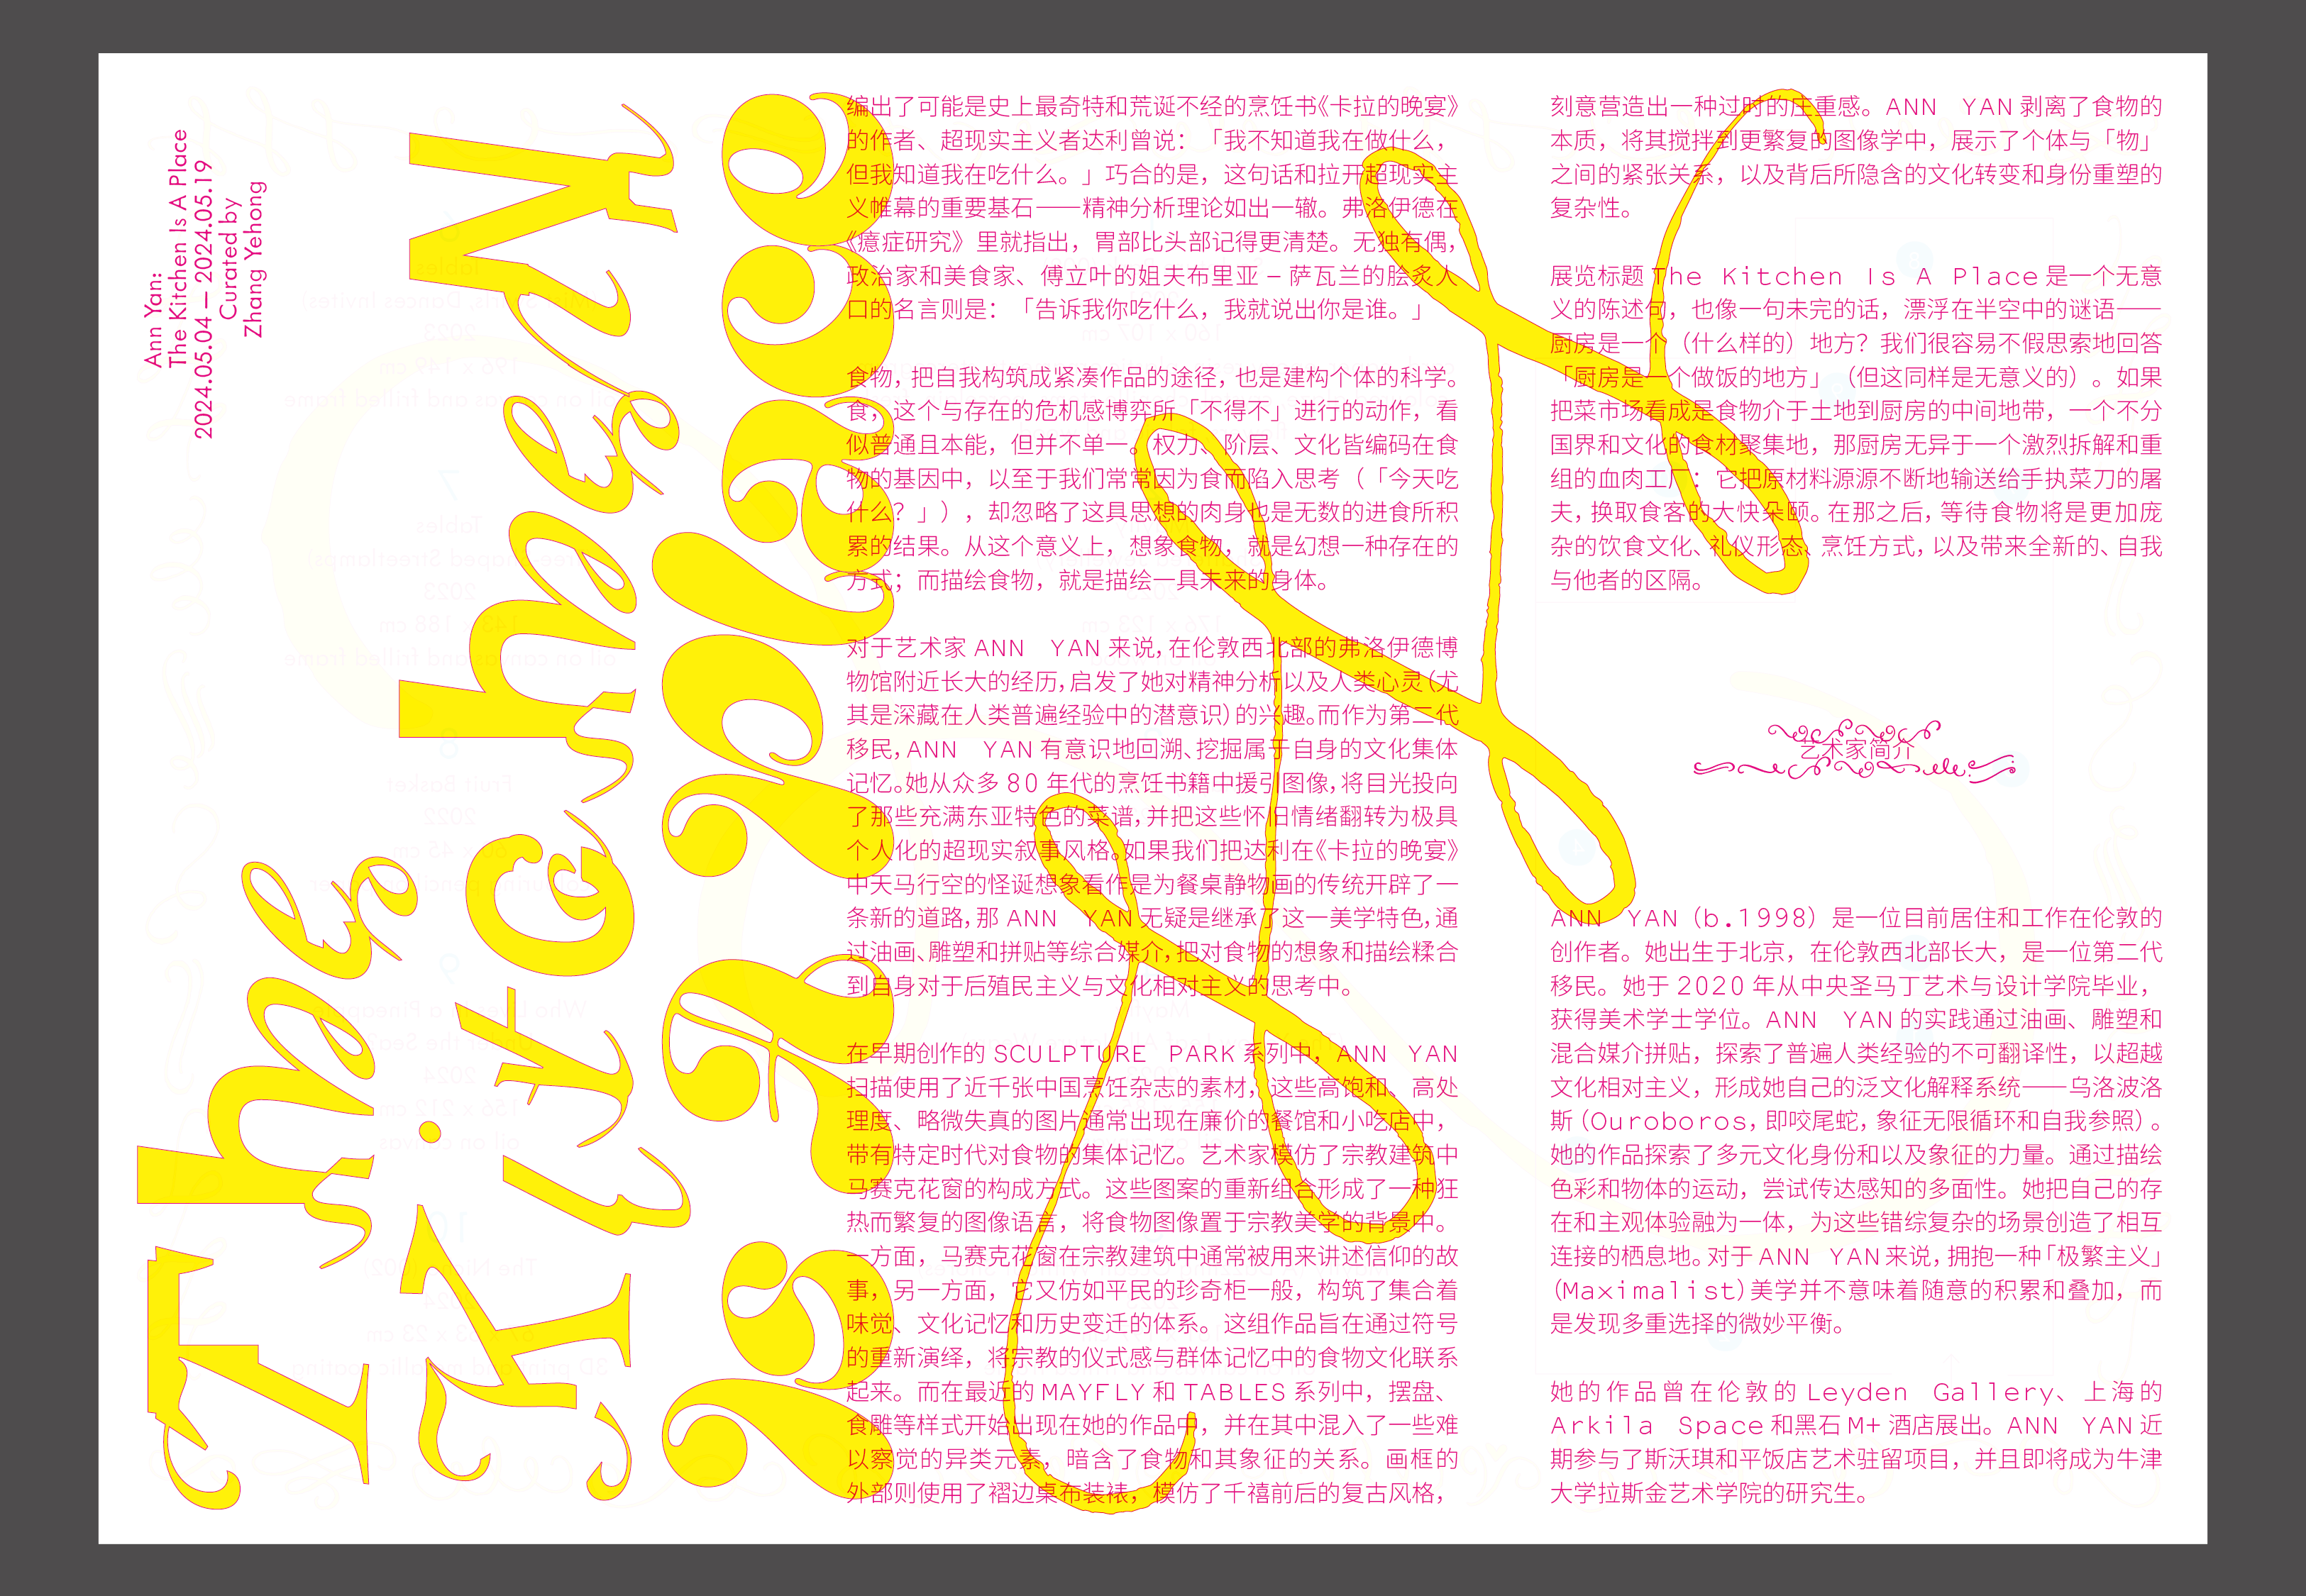 Ann Yan:
The Kitchen Is A Place
2024.05.04 — 2024.05.19
Curated by
Zhang Yehong
The
Kitchen
编出了可能是史上最奇特和荒诞不经的烹饪书《卡拉的晚宴》
的作者、超现实主义者达利曾说：「我不知道我在做什么，
但我知道我在吃什么。」巧合的是，这句话和拉开超现实主
义帷幕的重要基石——精神分析理论如出一辙。弗洛伊德在
《癔症研究》里就指出，胃部比头部记得更清楚。无独有偶，
政治家和美食家、傅立叶的姐夫布里亚 – 萨瓦兰的脍炙人
口的名言则是：「告诉我你吃什么，我就说出你是谁。」
食物，把自我构筑成紧凑作品的途径，也是建构个体的科学。
食，这个与存在的危机感博弈所「不得不」进行的动作，看
似普通且本能，但并不单一。权力、阶层、文化皆编码在食
物的基因中，以至于我们常常因为食而陷入思考（「今天吃
什么？」），却忽略了这具思想的肉身也是无数的进食所积
累的结果。从这个意义上，想象食物，就是幻想一种存在的
方式；而描绘食物，就是描绘一具未来的身体。
对于艺术家 ANN YAN 来说，在伦敦西北部的弗洛伊德博
物馆附近长大的经历，启发了她对精神分析以及人类心灵（尤
其是深藏在人类普遍经验中的潜意识）的兴趣。而作为第二代
移民，ANN YAN 有意识地回溯、挖掘属于自身的文化集体
记忆。她从众多 80 年代的烹饪书籍中援引图像，将目光投向
了那些充满东亚特色的菜谱，并把这些怀旧情绪翻转为极具
个人化的超现实叙事风格。如果我们把达利在《卡拉的晚宴》
中天马行空的怪诞想象看作是为餐桌静物画的传统开辟了一
条新的道路，那 ANN YAN 无疑是继承了这一美学特色，通
过油画、雕塑和拼贴等综合媒介，把对食物的想象和描绘糅合
到自身对于后殖民主义与文化相对主义的思考中。
在早期创作的 SCULPTURE PARK 系列中，ANN YAN
扫描使用了近千张中国烹饪杂志的素材，这些高饱和、高处
理度、略微失真的图片通常出现在廉价的餐馆和小吃店中，
带有特定时代对食物的集体记忆。艺术家模仿了宗教建筑中
马赛克花窗的构成方式。这些图案的重新组合形成了一种狂
热而繁复的图像语言，将食物图像置于宗教美学的背景中。
一方面，马赛克花窗在宗教建筑中通常被用来讲述信仰的故
事，另一方面，它又仿如平民的珍奇柜一般，构筑了集合着
味觉、文化记忆和历史变迁的体系。这组作品旨在通过符号
的重新演绎，将宗教的仪式感与群体记忆中的食物文化联系
起来。而在最近的 MAYFLY 和 TABLES 系列中，摆盘、
食雕等样式开始出现在她的作品中，并在其中混入了一些难
以察觉的异类元素，暗含了食物和其象征的关系。画框的
外部则使用了褶边桌布装裱，模仿了千禧前后的复古风格，
刻意营造出一种过时的庄重感。ANN YAN 剥离了食物的
本质，将其搅拌到更繁复的图像学中，展示了个体与「物」
之间的紧张关系，以及背后所隐含的文化转变和身份重塑的
复杂性。
展览标题 The Kitchen Is A Place 是一个无意
义的陈述句，也像一句未完的话，漂浮在半空中的谜语——
厨房是一个（什么样的）地方？我们很容易不假思索地回答
「厨房是一个做饭的地方」（但这同样是无意义的）。如果
把菜市场看成是食物介于土地到厨房的中间地带，一个不分
国界和文化的食材聚集地，那厨房无异于一个激烈拆解和重
组的血肉工厂：它把原材料源源不断地输送给手执菜刀的屠
夫，换取食客的大快朵颐。在那之后，等待食物将是更加庞
杂的饮食文化、礼仪形态、烹饪方式，以及带来全新的、自我
与他者的区隔。
艺术家简介
ANN YAN（b.1998）是一位目前居住和工作在伦敦的
创作者。她出生于北京，在伦敦西北部长大，是一位第二代
移民。她于 2020 年从中央圣马丁艺术与设计学院毕业，
获得美术学士学位。ANN YAN 的实践通过油画、雕塑和
混合媒介拼贴，探索了普遍人类经验的不可翻译性，以超越
文化相对主义，形成她自己的泛文化解释系统——乌洛波洛
斯（Ouroboros，即咬尾蛇，象征无限循环和自我参照）。
她的作品探索了多元文化身份和以及象征的力量。通过描绘
色彩和物体的运动，尝试传达感知的多面性。她把自己的存
在和主观体验融为一体，为这些错综复杂的场景创造了相互
连接的栖息地。对于 ANN YAN 来说，拥抱一种「极繁主义」
（Maximalist）美学并不意味着随意的积累和叠加，而
是发现多重选择的微妙平衡。
她的作品曾在伦敦的 Leyden Gallery、上海的
Arkila Space 和黑石 M+ 酒店展出。ANN YAN 近
期参与了斯沃琪和平饭店艺术驻留项目，并且即将成为牛津
大学拉斯金艺术学院的研究生。